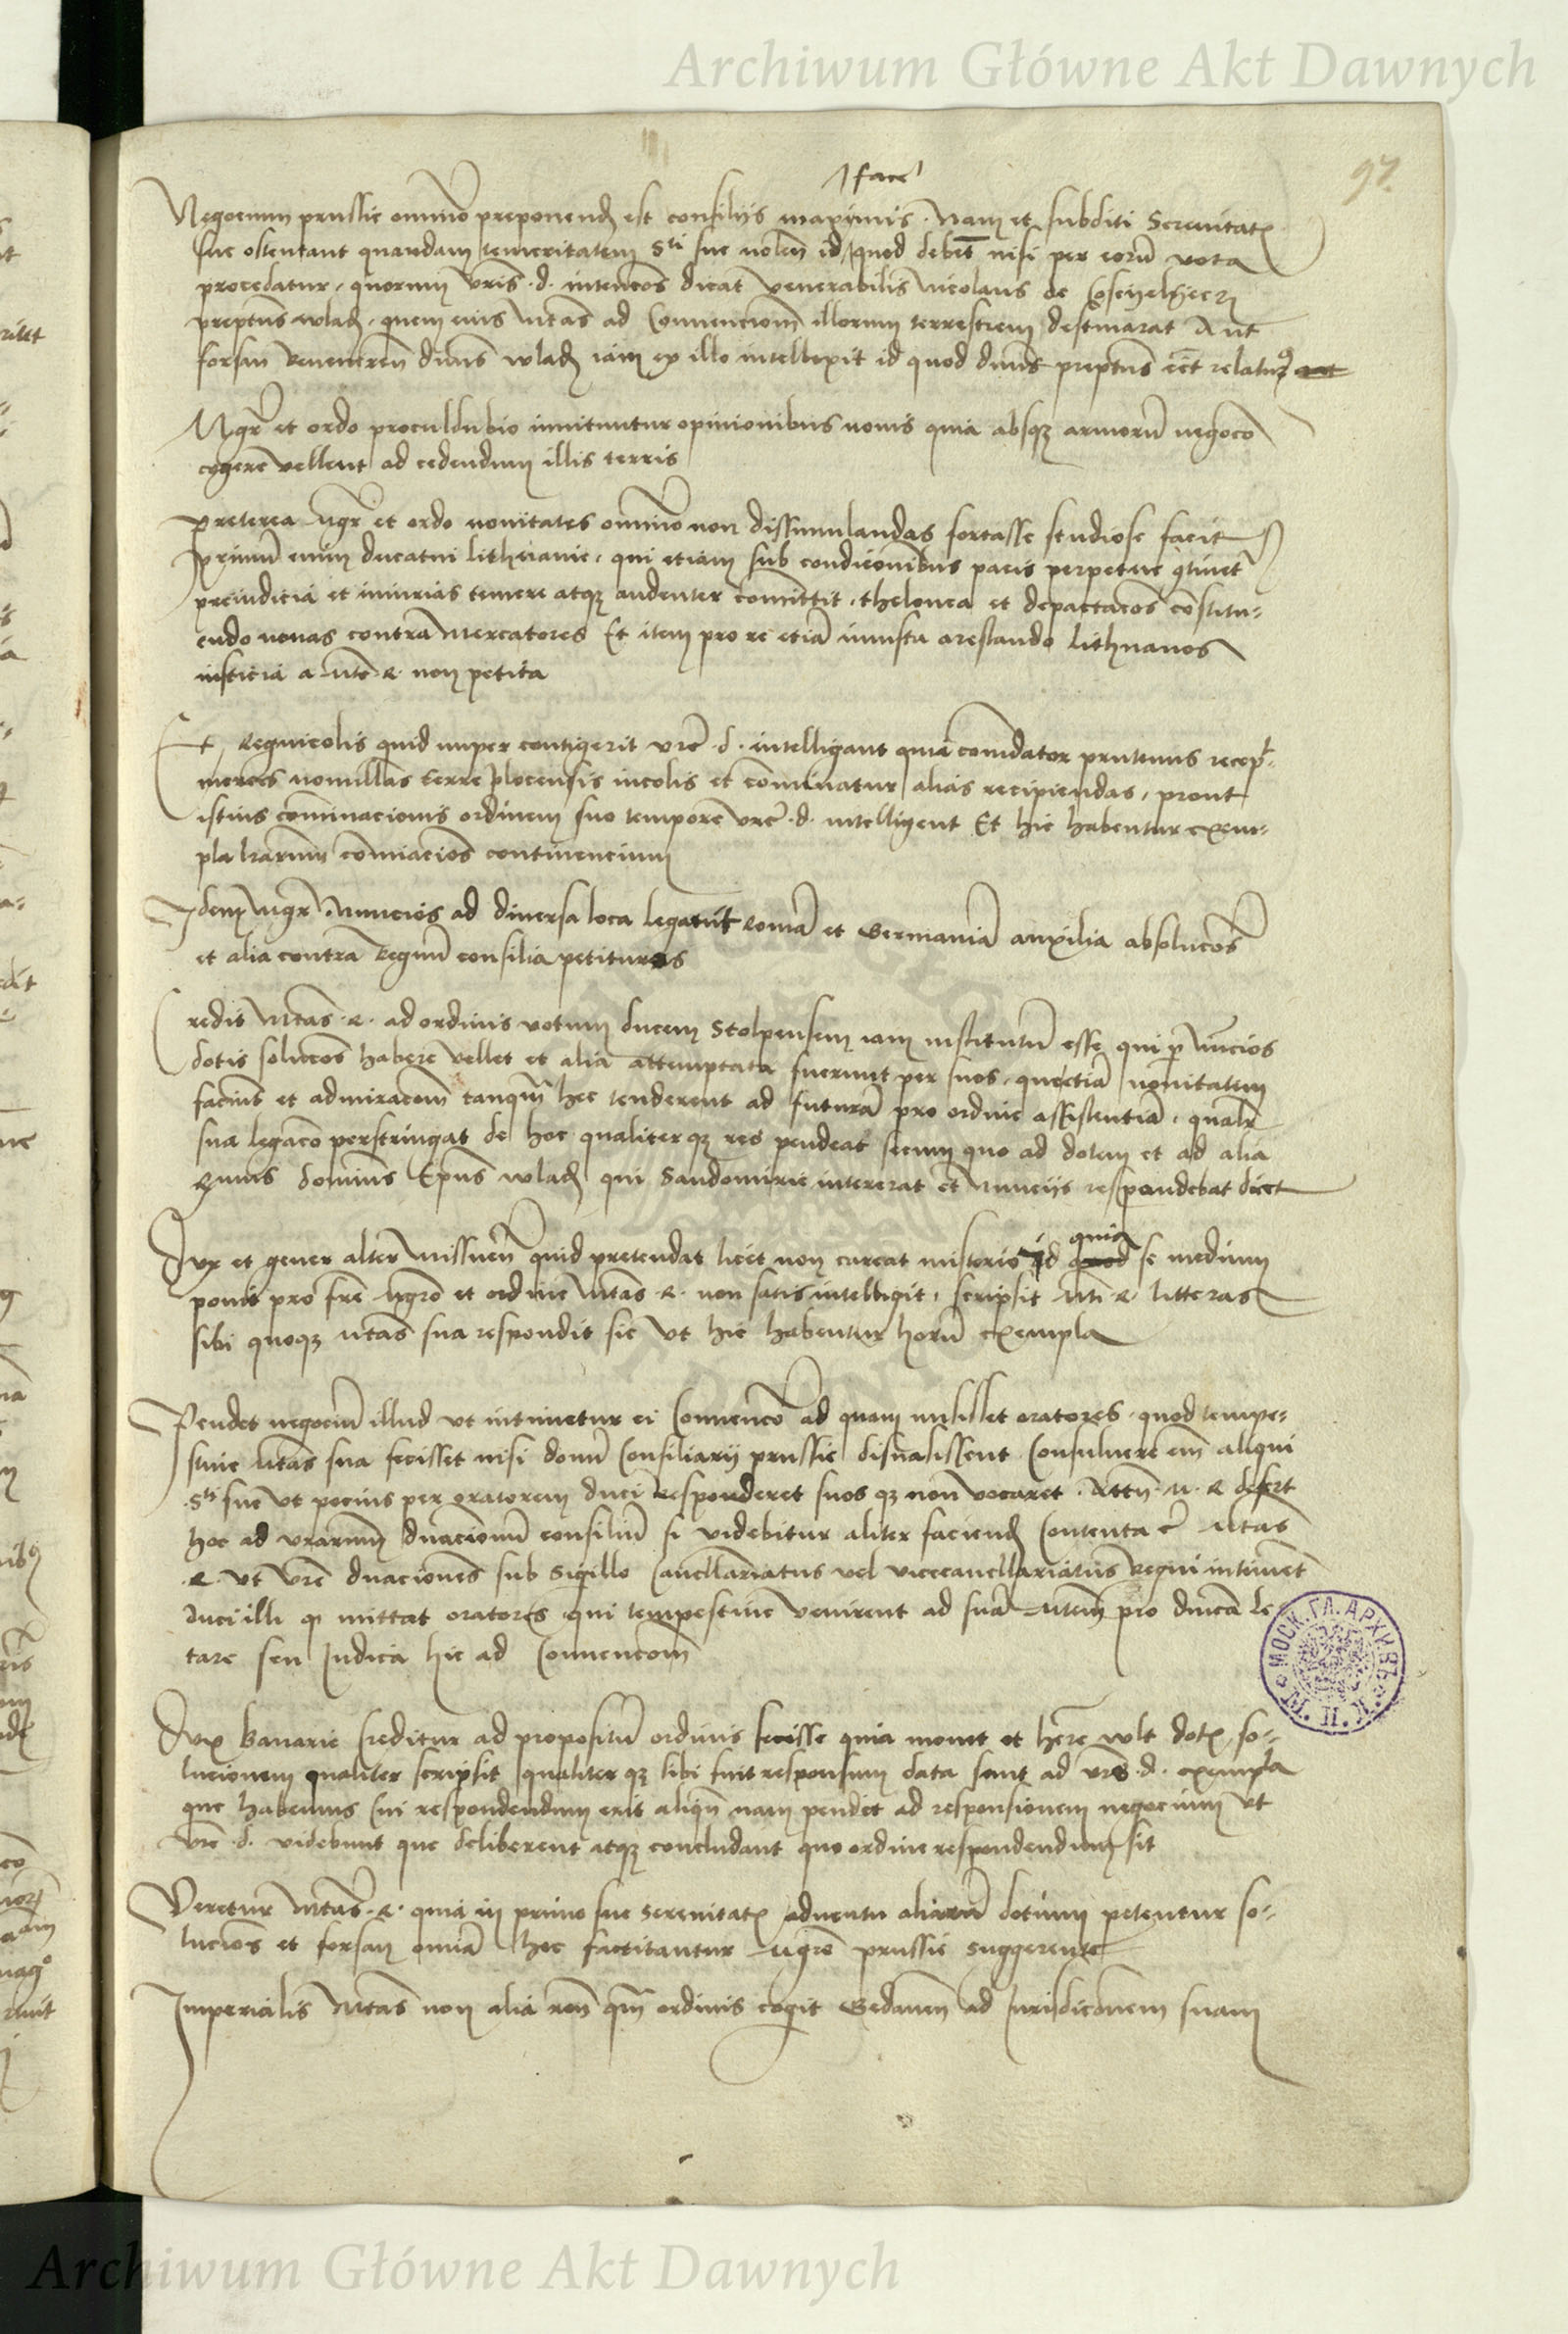 Archiwum Główne Akt Dawnych
97.
face
Negocium prussie omnino preponend est consiliis maximis. Nam et subditi Serenitatis
sue ostentant quandam temeritatem Sti sue nolen id quod debet nisi per eorum vota
procedatur, quorum vris d. intencos dicat venerabilis Nicolaus de
preptus wlad, quem eius Mtas ad Convencionem illorum terrestrem destinarat Aut
forsan Reveneren dnus wlad iam ex illo intellexit id quod dnus preptus relatur
Mgr et ordo proculdubio innituntur opinionibus novis quia absqz armorum negoco
cogere vellent ad cedendum illis terris
Preterea Mgr et ordo novitates omnino non dissimulandas fortasse studiose facit
primum enim ducatui lithuanie, qui etiam sub condicionibus pacis perpetue
preiudicia et iniurias temere atqz audenter comittit, thelonea et depactacos constitu-
endo novas contra Mercatores Et item pro re etia iniusta arestando lithuanos
iusticia a Mte R. non petita
Et Regnicolis quid nuper contigerit vre d. intelligant quia comdator prutenus recep-
merces nonnullas terre plocensis incolis et cominatur alias recipiendas, prout
istius cominacionis ordinem suo tempore vre d. intelligent Et hic habentur exem-
pla lrarum cominacios continencium
Idem Mgr Nuncios ad diversa loca legavit Roma et Germania auxilia absolucos
et alia contra Regnum consilia petituros
Credit Mtas R. ad ordinis votum ducem Stolpensem iam institutum esse qui p Nuncios
dotis solucos habere vellet et alia attemptata fuerunt per suos, que etia novitatem
faciunt et admiracom tanqm hec tenderent ad futura pro ordine assistentia, qualr
sua legaco perstringat de hoc qualiterqz res pendeat secum quo ad dotem et ad alia
Rmus dominus Epus wlad qui Sandomirie intererat et Nunciis respondebat dicet
Dux et gener alter Missnen quid pretendat licet non careat misterio id quod quia se medium
ponit pro fre Mgro et ordine Mtas R. non satis intelligit, scripsit Mti R litteras
sibi quoqz Mtas sua respondit sic ut hic habentur horum exempla
Pendet negocium illud ut intimetur ei Convenco ad quam misisset oratores, quod tempe-
stive Mtas sua fecisset nisi domi Consiliarii prussie disuasissent Consuluere em aliqui
Sti sue ut pocius per oratorem duci Responderet suos qz non vocaret. M. R defert
hoc ad vrarum dnacionum consilium si videbitur aliter faciend Contenta e Mtas
R. ut vre dnaciones sub Sigillo Cancellariatus vel vicecancellariatus Regni intiment
duci illi q mittat oratores qui tempestive venirent ad sua Mtem pro dnica Le-
tare seu Iudica hic ad Convencom
Dux Bavarie Creditur ad propositum ordinis fecisse quia monet et here vult dotis so-
lucionem qualiter scripsit qualiter qz sibi fuit responsum data sunt ad vrs d. exempla
que habemus Cui respondendum erit aliqn nam pendet ad responsionem negocium ut
vre d. videbunt que deliberent atqz concludant quo ordine respondendum sit
Veretur Mtas R. quia in primo sue Serenitatis adventu aliarum dotum petentur so-
lucios et forsan omnia hec factitantur Mgro prussie suggerente
Imperialis Mtas non alia ron qm ordinis cogit Gedanen ad Iurisdicionem suam
МОСК. ГЛ. АРХИВЪ
Archiwum Główne Akt Dawnych